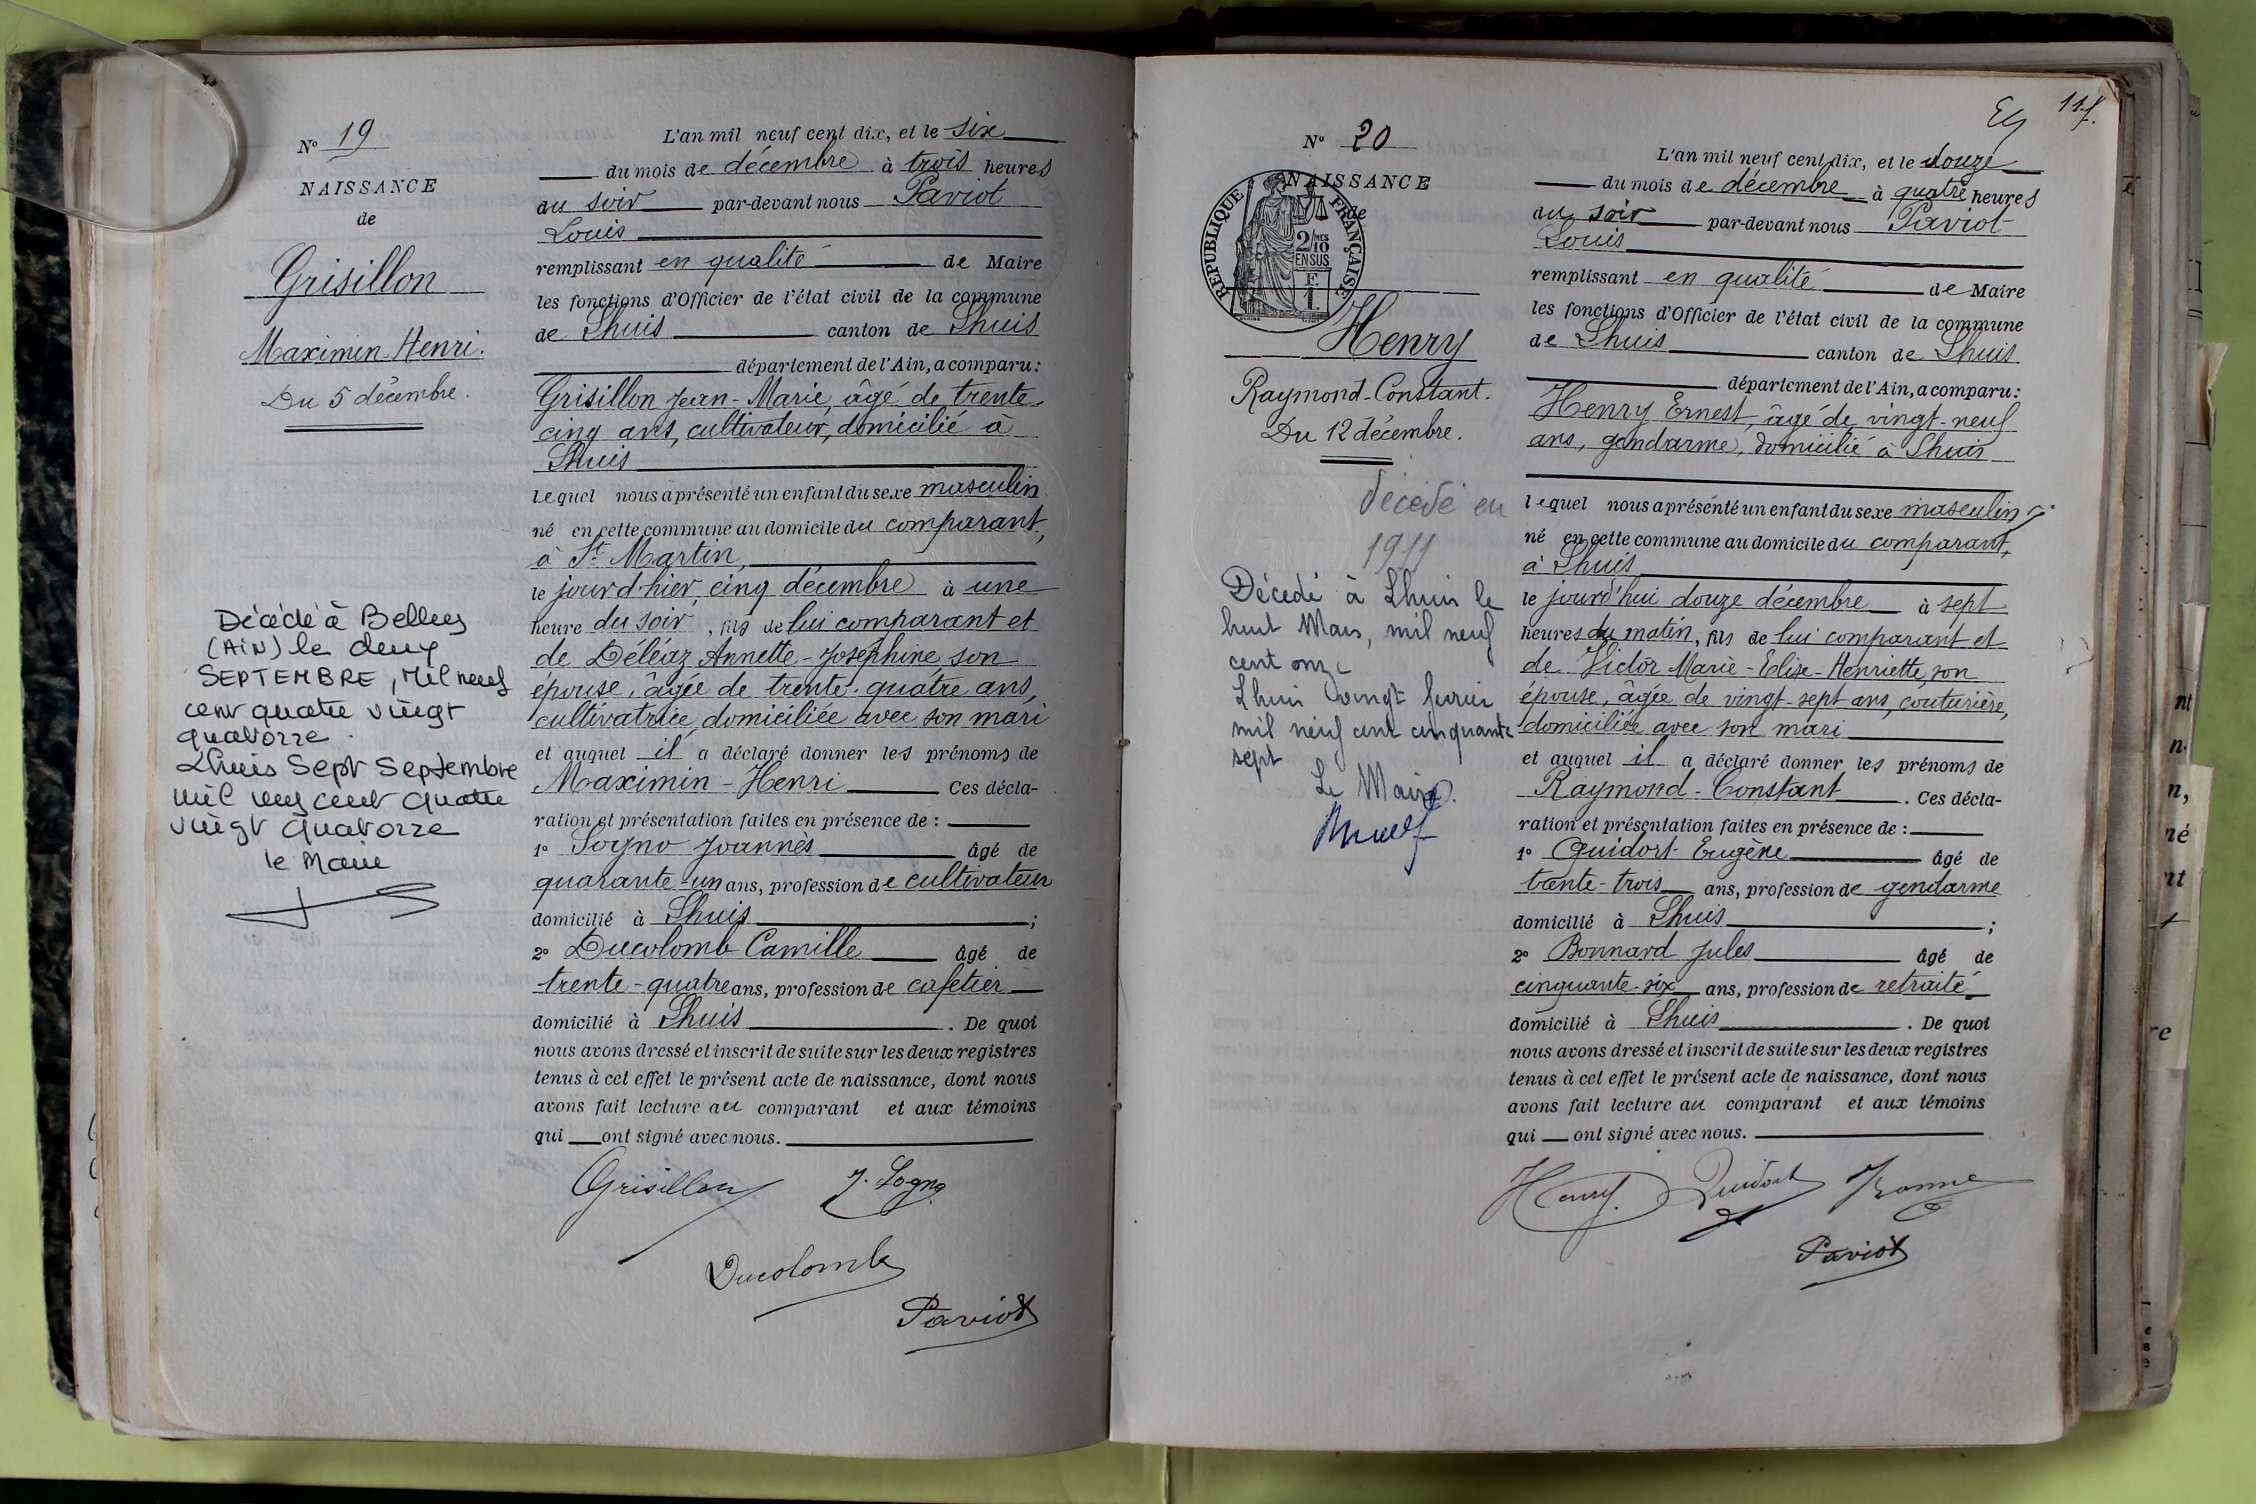 N° 19
NAISSANCE
de
Grisillon
Maximin-Henri.
Du 5 décembre.
Décédé à Belley
(AiN) le deux
SEPTEMBRE, Mil neuf
cent quatre vingt
quatorze.
Lhuis Sept Septembre
mil neuf cent quatre
vingt quatorze
le Maire
L'an mil neuf cent dix, et le six
du mois de décembre à trois heures
du soir par-devant nous Paviot
Louis
remplissant en qualité de Maire
les fonctions d'Officier de l'état civil de la commune
de Lhuis canton de Lhuis
département de l'Ain, a comparu:
Grisillon Jean-Marie, âgé de trente-
cinq ans, cultivateur, domicilié à
Lhuis
lequel nous a présenté un enfant du sexe masculin
né en cette commune au domicile du comparant,
à St Martin,
le jour d'hier, cinq décembre à une
heure du soir, fils de lui comparant et
de Déléaz Annette-Joséphine, son
épouse, âgée de trente-quatre ans,
cultivatrice, domiciliée avec son mari
et auquel il a déclaré donner les prénoms de
Maximin-Henri Ces décla-
ration et présentation faites en présence de :
1° Sogno Joannès âgé de
quarante-un ans, profession de cultivateur
domicilié à Lhuis ;
2° Ducolomb Camille âgé de
trente-quatre ans, profession de cafetier
domicilié à Lhuis . De quoi
nous avons dressé et inscrit de suite sur les deux registres
tenus à cet effet le présent acte de naissance, dont nous
avons fait lecture au comparant et aux témoins
qui ont signé avec nous.
Grisillon J. Sogno
Ducolomb
Paviot
117.
N° 20
NAISSANCE
de
REPUBLIQUE FRANÇAISE
2/10 MES
EN SUS
F.
1
Henry
Raymond-Constant.
Du 12 décembre.
décédé en
1911
Décédé à Lhuis le
huit Mars, mil neuf
cent onze
Lhuis vingt février
mil neuf cent cinquante
sept
Le Maire.
L'an mil neuf cent dix, et le douze
du mois de décembre à quatre heures
du soir par-devant nous Paviot
Louis
remplissant en qualité de Maire
les fonctions d'Officier de l'état civil de la commune
de Lhuis canton de Lhuis
département de l'Ain, a comparu:
Henry Ernest, âgé de vingt-neuf
ans, gendarme, domicilié à Lhuis
lequel nous a présenté un enfant du sexe masculin
né en cette commune au domicile du comparant,
à Lhuis
le jourd'hui douze décembre à sept
heures du matin, fils de lui comparant et
de Victor Marie-Elise-Henriette, son
épouse, âgée de vingt-sept ans, couturière,
domiciliée avec son mari
et auquel il a déclaré donner les prénoms de
Raymond-Constant . Ces décla-
ration et présentation faites en présence de :
1° Guidort Eugène âgé de
trente-trois ans, profession de gendarme
domicilié à Lhuis ;
2° Bonnard Jules âgé de
cinquante-six ans, profession de retraité
domicilié à Lhuis . De quoi
nous avons dressé et inscrit de suite sur les deux registres
tenus à cet effet le présent acte de naissance, dont nous
avons fait lecture au comparant et aux témoins
qui ont signé avec nous.
Henry Guidort
Paviot